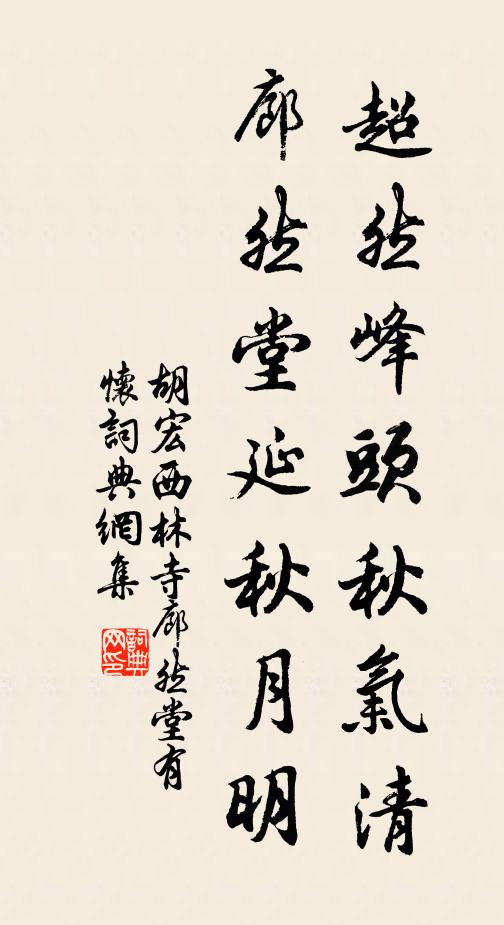 超然峰頭秋氣清
廓然堂延秋月明
胡宏西林寺廓然堂有
懷詞典網集
詞典
网印